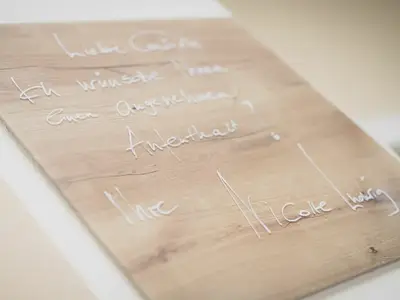 Liebe Gäste
Ich wünsche Ihnen
einen angenehmen
Aufenthalt.
Ihre Nicole